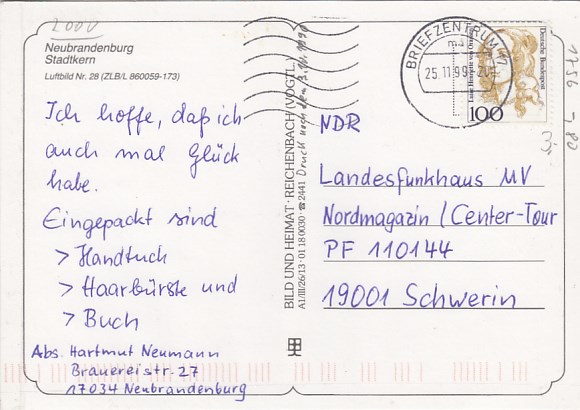 2000
Neubrandenburg
Stadtkern
Luftbild Nr. 28 (ZLB/L 860059-173)
Ich hoffe, daß ich
auch mal Glück
habe.
Eingepackt sind
> Handtuch
> Haarbürste und
> Buch
Abs. Hartmut Neumann
Brauereistr. 27
17034 Neubrandenburg
BILD UND HEIMAT · REICHENBACH (VOGTL.)
A1/III/26/13 · 01 18 0030 · ☎ 2441 Druck nach dem 3.10.1990
BRIEFZENTRUM 17
25.11.99-20
Deutsche Bundespost
100
1756-80
3,-
NDR
Landesfunkhaus MV
Nordmagazin / Center-Tour
PF 110144
19001 Schwerin